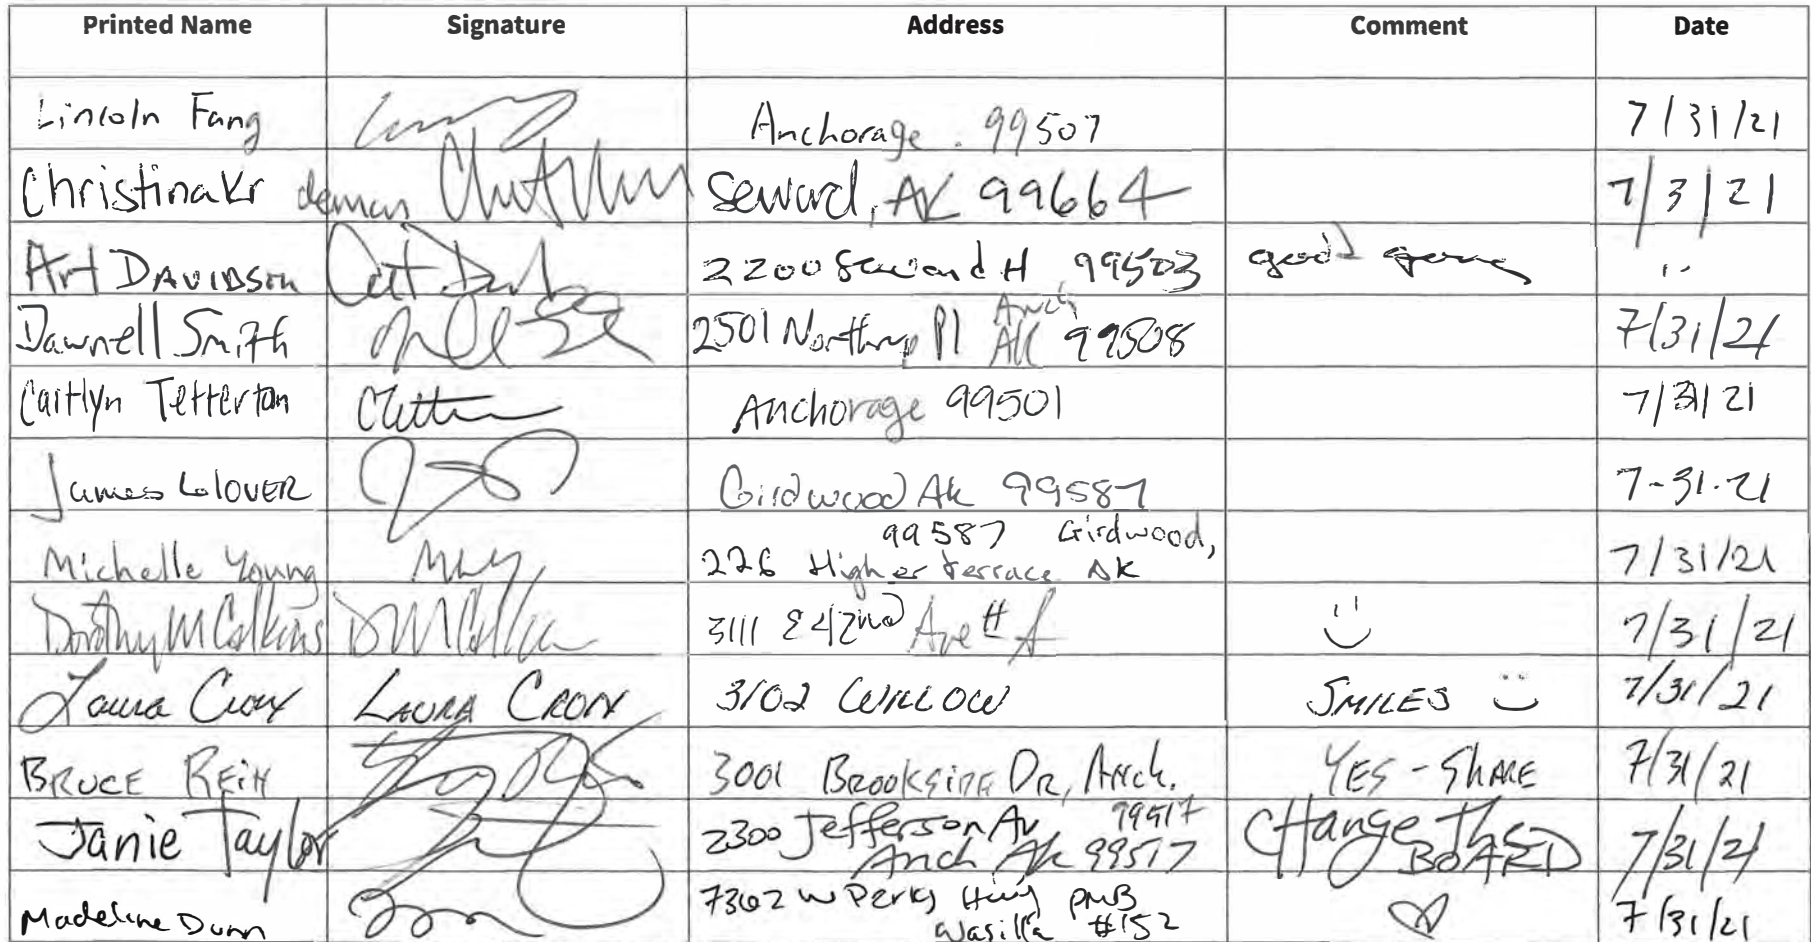 Printed Name Signature Address Comment Date
Lincoln Fang Anchorage. 99507 7/31/21
Christina Kr demars Seward, AK 99664 7/3/21
Art DAVIDSON Art 2200 Seward H 99503 good going "
Dawnell Smith 2501 Northrup Pl Anch AK 99508 7/31/21
Caitlyn Tetterton Anchorage 99501 7/31/21
James Glover Girdwood Ak 99587 7-31-21
99587 Girdwood,
Michelle Young 226 Higher terrace AK 7/31/21
Dorothy M Calkins 3111 E 42nd Ave # A 7/31/21
Laura LAURA 3102 WILLOW SMILES 7/31/21
BRUCE REIH 3001 BROOKSIDE DR, ANCH. YES - SHARE 7/31/21
Janie Taylor 2300 Jefferson Av 99517 CHange The
Anch Ak 99517 BOARD 7/31/21
Madeline Dunn 7362 W Perks Hwy PMB
Wasilla #152 7/31/21